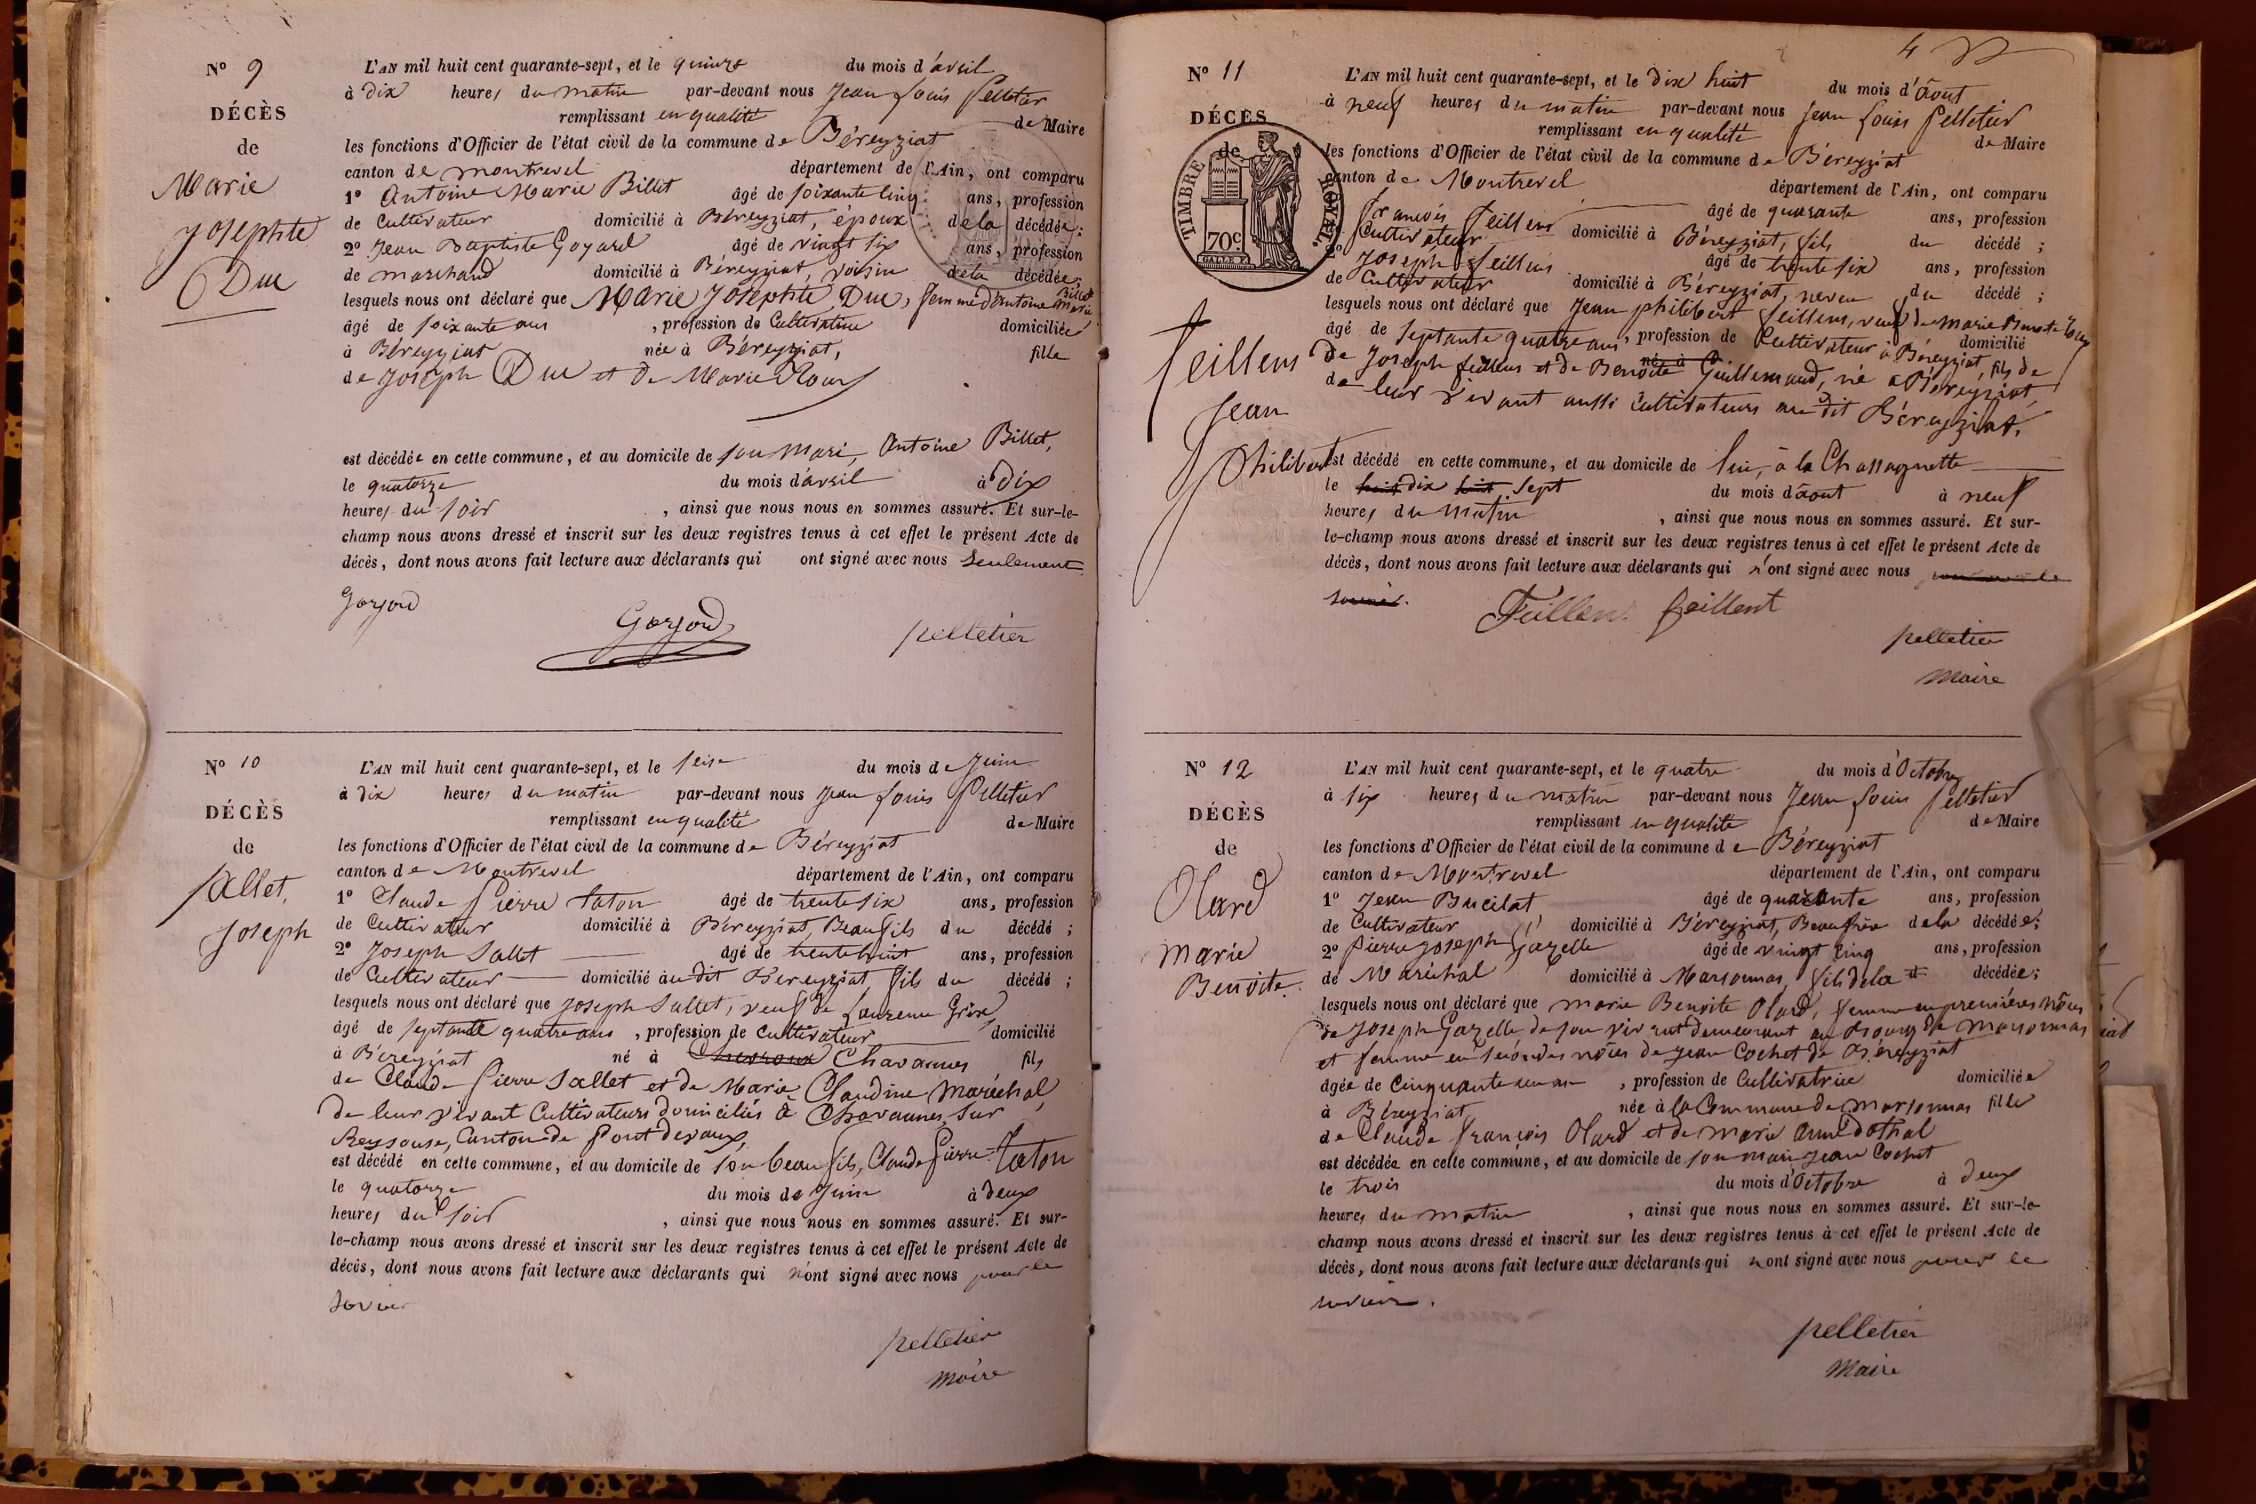 N° 9
DÉCÈS
de
Marie
Josephte
Duc
L'AN mil huit cent quarante-sept, et le quinze du mois d'avril
à dix heures du matin par-devant nous Jean Louis Pelletier
remplissant en qualité de Maire
les fonctions d'Officier de l'état civil de la commune de Béreyziat
canton de montrevel département de l'Ain, ont comparu
1° Antoine Marie Billet âgé de soixante cinq ans, profession
de Cultivateur domicilié à Béreyziat, époux de la décédée;
2° Jean Baptiste Goyard âgé de vingt six ans, profession
de marchand domicilié à Béreyziat, voisin de la décédée;
lesquels nous ont déclaré que Marie Josephte Duc, femme d'Antoine Marie Billet
âgé de soixante ans, profession de Cultivatrice domiciliée
à Béreyziat née à Béreyziat, fille
de Joseph Duc et de Marie
est décédée en cette commune, et au domicile de son mari, Antoine Billet,
le quatorze du mois d'avril à dix
heures du soir, ainsi que nous nous en sommes assuré. Et sur-le-
champ nous avons dressé et inscrit sur les deux registres tenus à cet effet le présent Acte de
décès, dont nous avons fait lecture aux déclarants qui ont signé avec nous seulement
goyard
Goyard
pelletier
N° 10
DÉCÈS
de
Sallet,
Joseph
L'AN mil huit cent quarante-sept, et le seize du mois de Juin
à dix heures du matin par-devant nous Jean Louis Pelletier
remplissant en qualité de Maire
les fonctions d'Officier de l'état civil de la commune de Béreyziat
canton de Montrevel département de l'Ain, ont comparu
1° Claude Pierre Taton âgé de trente six ans, profession
de Cultivateur domicilié à Béreyziat, Beau fils du décédé;
2° Joseph Sallet âgé de trente huit ans, profession
de Cultivateur domicilié au dit Béreyziat, fils du décédé;
lesquels nous ont déclaré que Joseph Sallet, veuf de Laurence
âgé de septante quatre ans, profession de cultivateur domicilié
à Béreyziat né à Chavannes fils
de Claude Pierre Sallet et de Marie Claudine Maréchal,
de leur vivant Cultivateurs domiciliés à Chavannes, sur
Reyssouse, Canton de Pont devaux,
est décédé en cette commune, et au domicile de son beau fils, Claude Pierre Taton
le quatorze du mois de Juin à deux
heures du soir, ainsi que nous nous en sommes assuré. Et sur-
le-champ nous avons dressé et inscrit sur les deux registres tenus à cet effet le présent Acte de
décès, dont nous avons fait lecture aux déclarants qui n'ont signé avec nous pour le
savoir
pelletier
maire
4
N° 11
DÉCÈS
de
TIMBRE ROYAL.
70c
feillens
Jean
Philibert
L'AN mil huit cent quarante-sept, et le dix huit du mois d'août
à neuf heures du matin par-devant nous Jean Louis Pelletier
remplissant en qualité de Maire
les fonctions d'Officier de l'état civil de la commune de Béreyziat
canton de Montrevel département de l'Ain, ont comparu
francois feillens âgé de quarante ans, profession
Cultivateur domicilié à Béreyziat, fils du décédé;
2° Joseph feillens âgé de trente six ans, profession
de Cultivateur domicilié à Béreyziat, neveu du décédé;
lesquels nous ont déclaré que Jean philibert feillens, veuf de marie Benoite
âgé de septante quatre ans, profession de Cultivateur à Béreyziat, domicilié
né à
de Joseph feillens et de Benoite Guillermaud, né à Béreyziat, fils de
de leur vivant aussi cultivateurs au dit Béreyziat.
est décédé en cette commune, et au domicile de lui, à la Chassagnette
le huit dix huit sept du mois d'août à neuf
heures du matin, ainsi que nous nous en sommes assuré. Et sur-
le-champ nous avons dressé et inscrit sur les deux registres tenus à cet effet le présent Acte de
décès, dont nous avons fait lecture aux déclarants qui ont signé avec nous
Feillens feillent
pelletier
maire
N° 12
DÉCÈS
de
Olard
Marie
Benoite.
L'AN mil huit cent quarante-sept, et le quatre du mois d'Octobre
à six heures du matin par-devant nous Jean Louis pelletier
remplissant en qualité de Maire
les fonctions d'Officier de l'état civil de la commune de Béreyziat
canton de Montrevel département de l'Ain, ont comparu
1° Jean Bucilat âgé de quarante ans, profession
de Cultivateur domicilié à Béreyziat, Beau frère de la décédée;
2° pierre joseph Gazelle âgé de vingt cinq ans, profession
de Maréchal domicilié à Marsonnas, fils de la décédée;
lesquels nous ont déclaré que marie Benoite Olard, femme en premières nôces
de Joseph Gazelle de son vivant demeurant au Bourg de marsonnas
et femme en secondes nôces de Jean Cochet de Béreyziat
âgée de cinquante un an, profession de Cultivatrice domiciliée
à Béreyziat, née à la Commune de marsonnas fille
de Claude françois Olard et de marie anne
est décédée en cette commune, et au domicile de son mari Jean Cochet
le trois du mois d'Octobre à deux
heures du matin, ainsi que nous nous en sommes assuré. Et sur-le-
champ nous avons dressé et inscrit sur les deux registres tenus à cet effet le présent Acte de
décès, dont nous avons fait lecture aux déclarants qui n'ont signé avec nous pour le
savoir.
pelletier
Maire